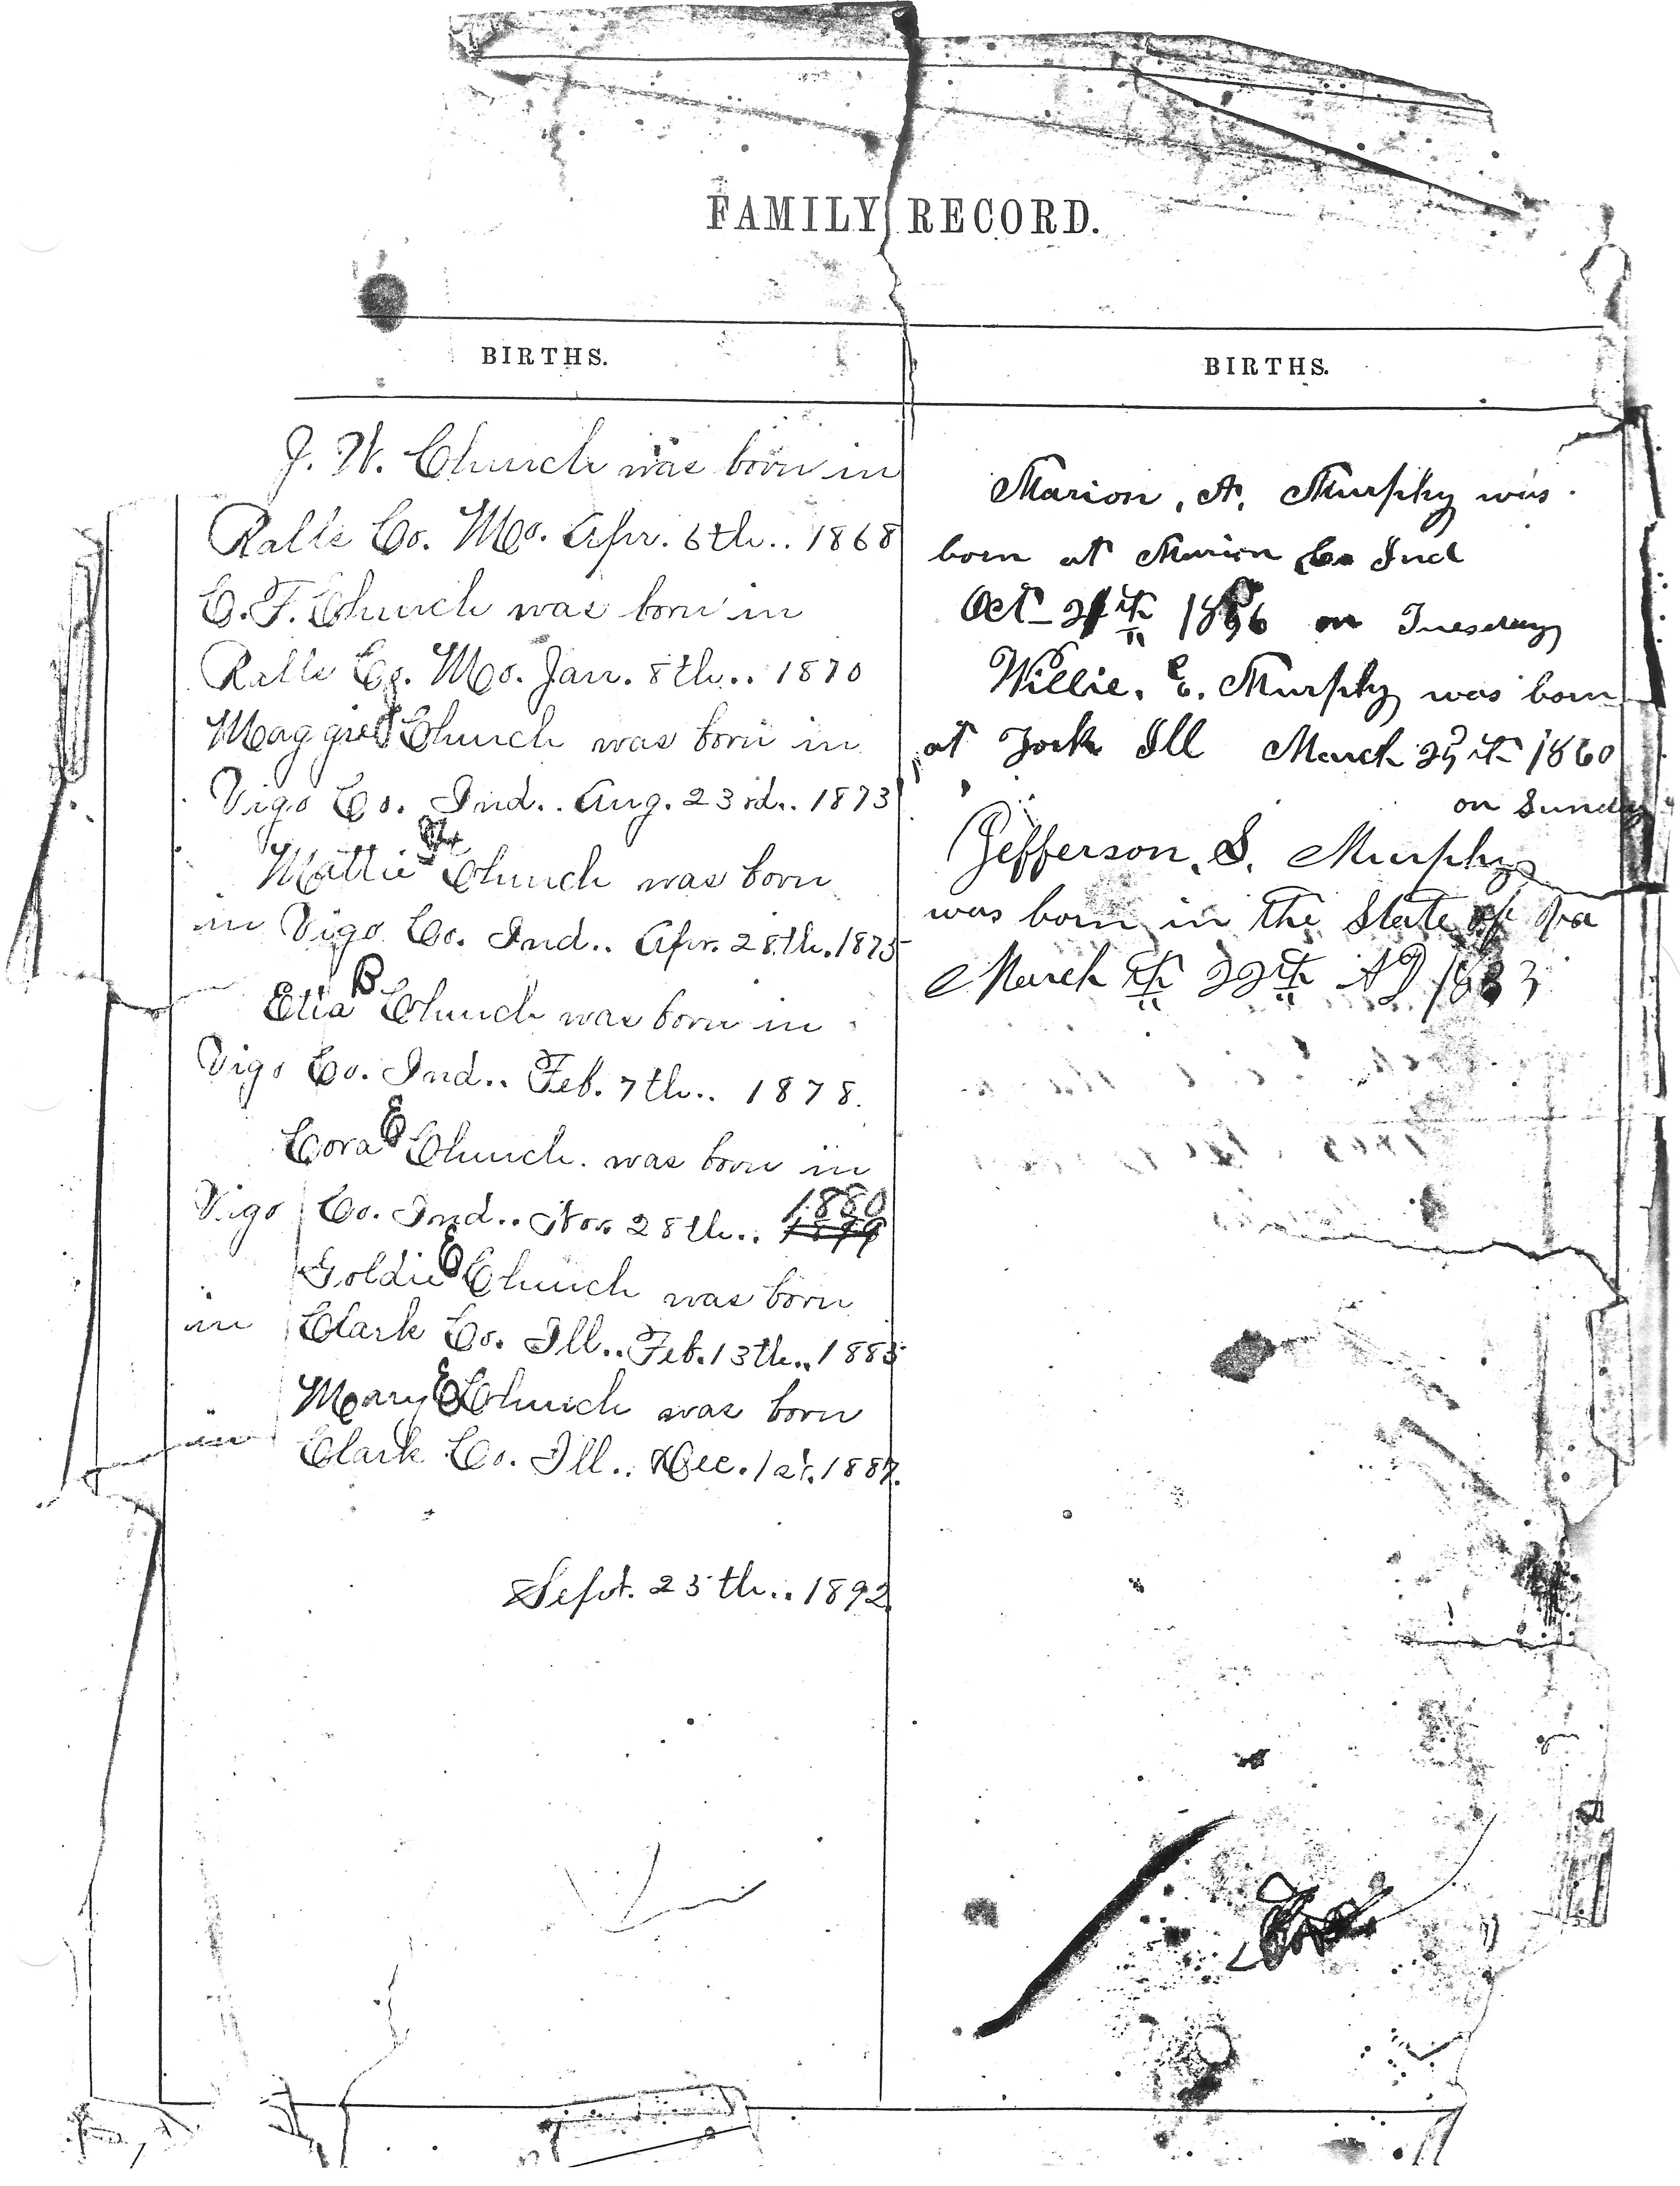 FAMILY RECORD.
BIRTHS.
J. W. Church was born in
Ralls Co. Mo. Apr. 6th.. 1868
C. F. Church was born in
Ralls Co. Mo. Jan. 8th.. 1870
Maggie Church was born in
Vigo Co. Ind.. Aug. 23rd.. 1873
Mattie Church was born
in Vigo Co. Ind.. Apr. 28th. 1875
Etta B Church was born in
Vigo Co. Ind.. Feb. 7th.. 1878.
Cora E Church. was born in
1880
Vigo Co. Ind.. Nov. 28th.. 1879
Goldie E Church was born
in Clark Co. Ill.. Feb. 13th.. 1885
Mary E Church was born
in Clark Co. Ill.. Dec. 1st. 1887.
Sept. 25th.. 1892
BIRTHS.
Marion. A. Murphy was
born at Marion Co Ind
Oct 1856 on Tuesday
Willie. E. Murphy was born
at York Ill March 25th 1860
on Sunday
Jefferson. S. Murphy
was born in the State of
March th 22th AD 1833